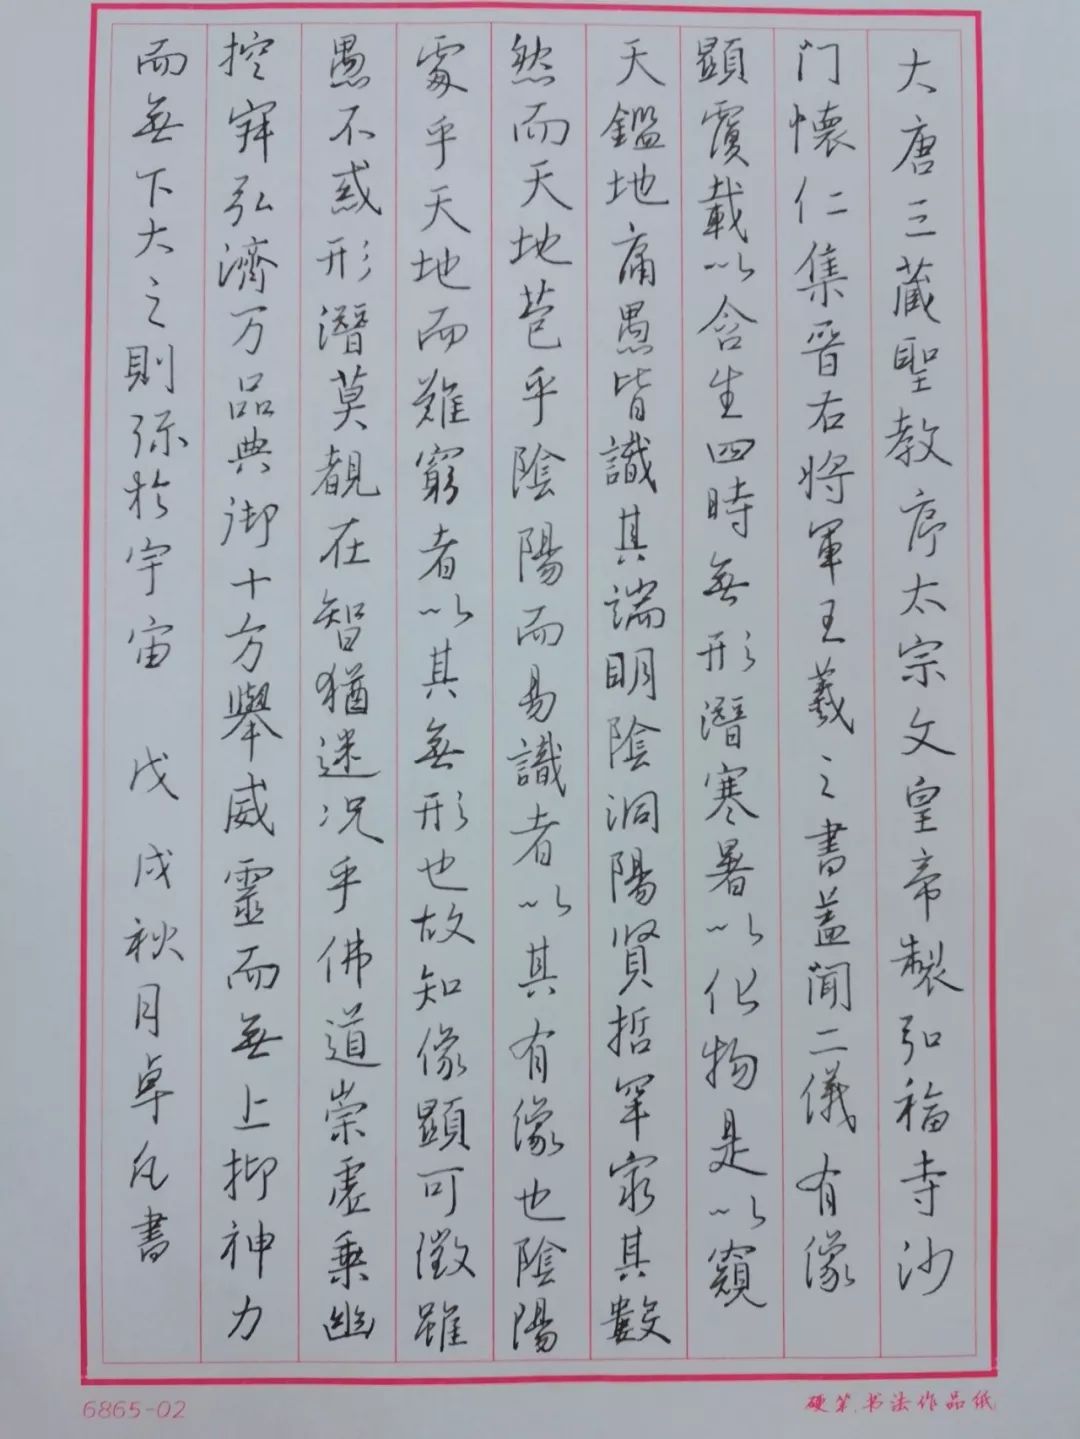 大唐三藏聖教序太宗文皇帝製弘福寺沙
门懷仁集晉右将軍王羲之書盖聞二儀有像
顯覆載以含生四時無形潛寒暑以化物是以窺
天鑑地庸愚皆識其端明陰洞陽賢哲罕窮其數
然而天地苞乎陰陽而易識者以其有像也陰陽
處乎天地而難窮者以其無形也故知像顯可徵雖
愚不惑形潛莫覩在智猶迷况乎佛道崇虛乘幽
控寂弘濟万品典御十方舉威靈而無上抑神力
而無下大之則弥於宇宙 戊戌秋月卓凡書
6865-02
硬笔书法作品纸